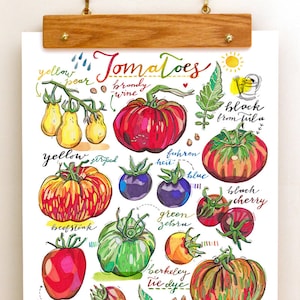 Tomatoes
yellow
pear
brandy
wine
black
from tula
yellow
striped
fahren
heit
blue
black
cherry
beefsteak
green
zebra
berkeley
tie-dye